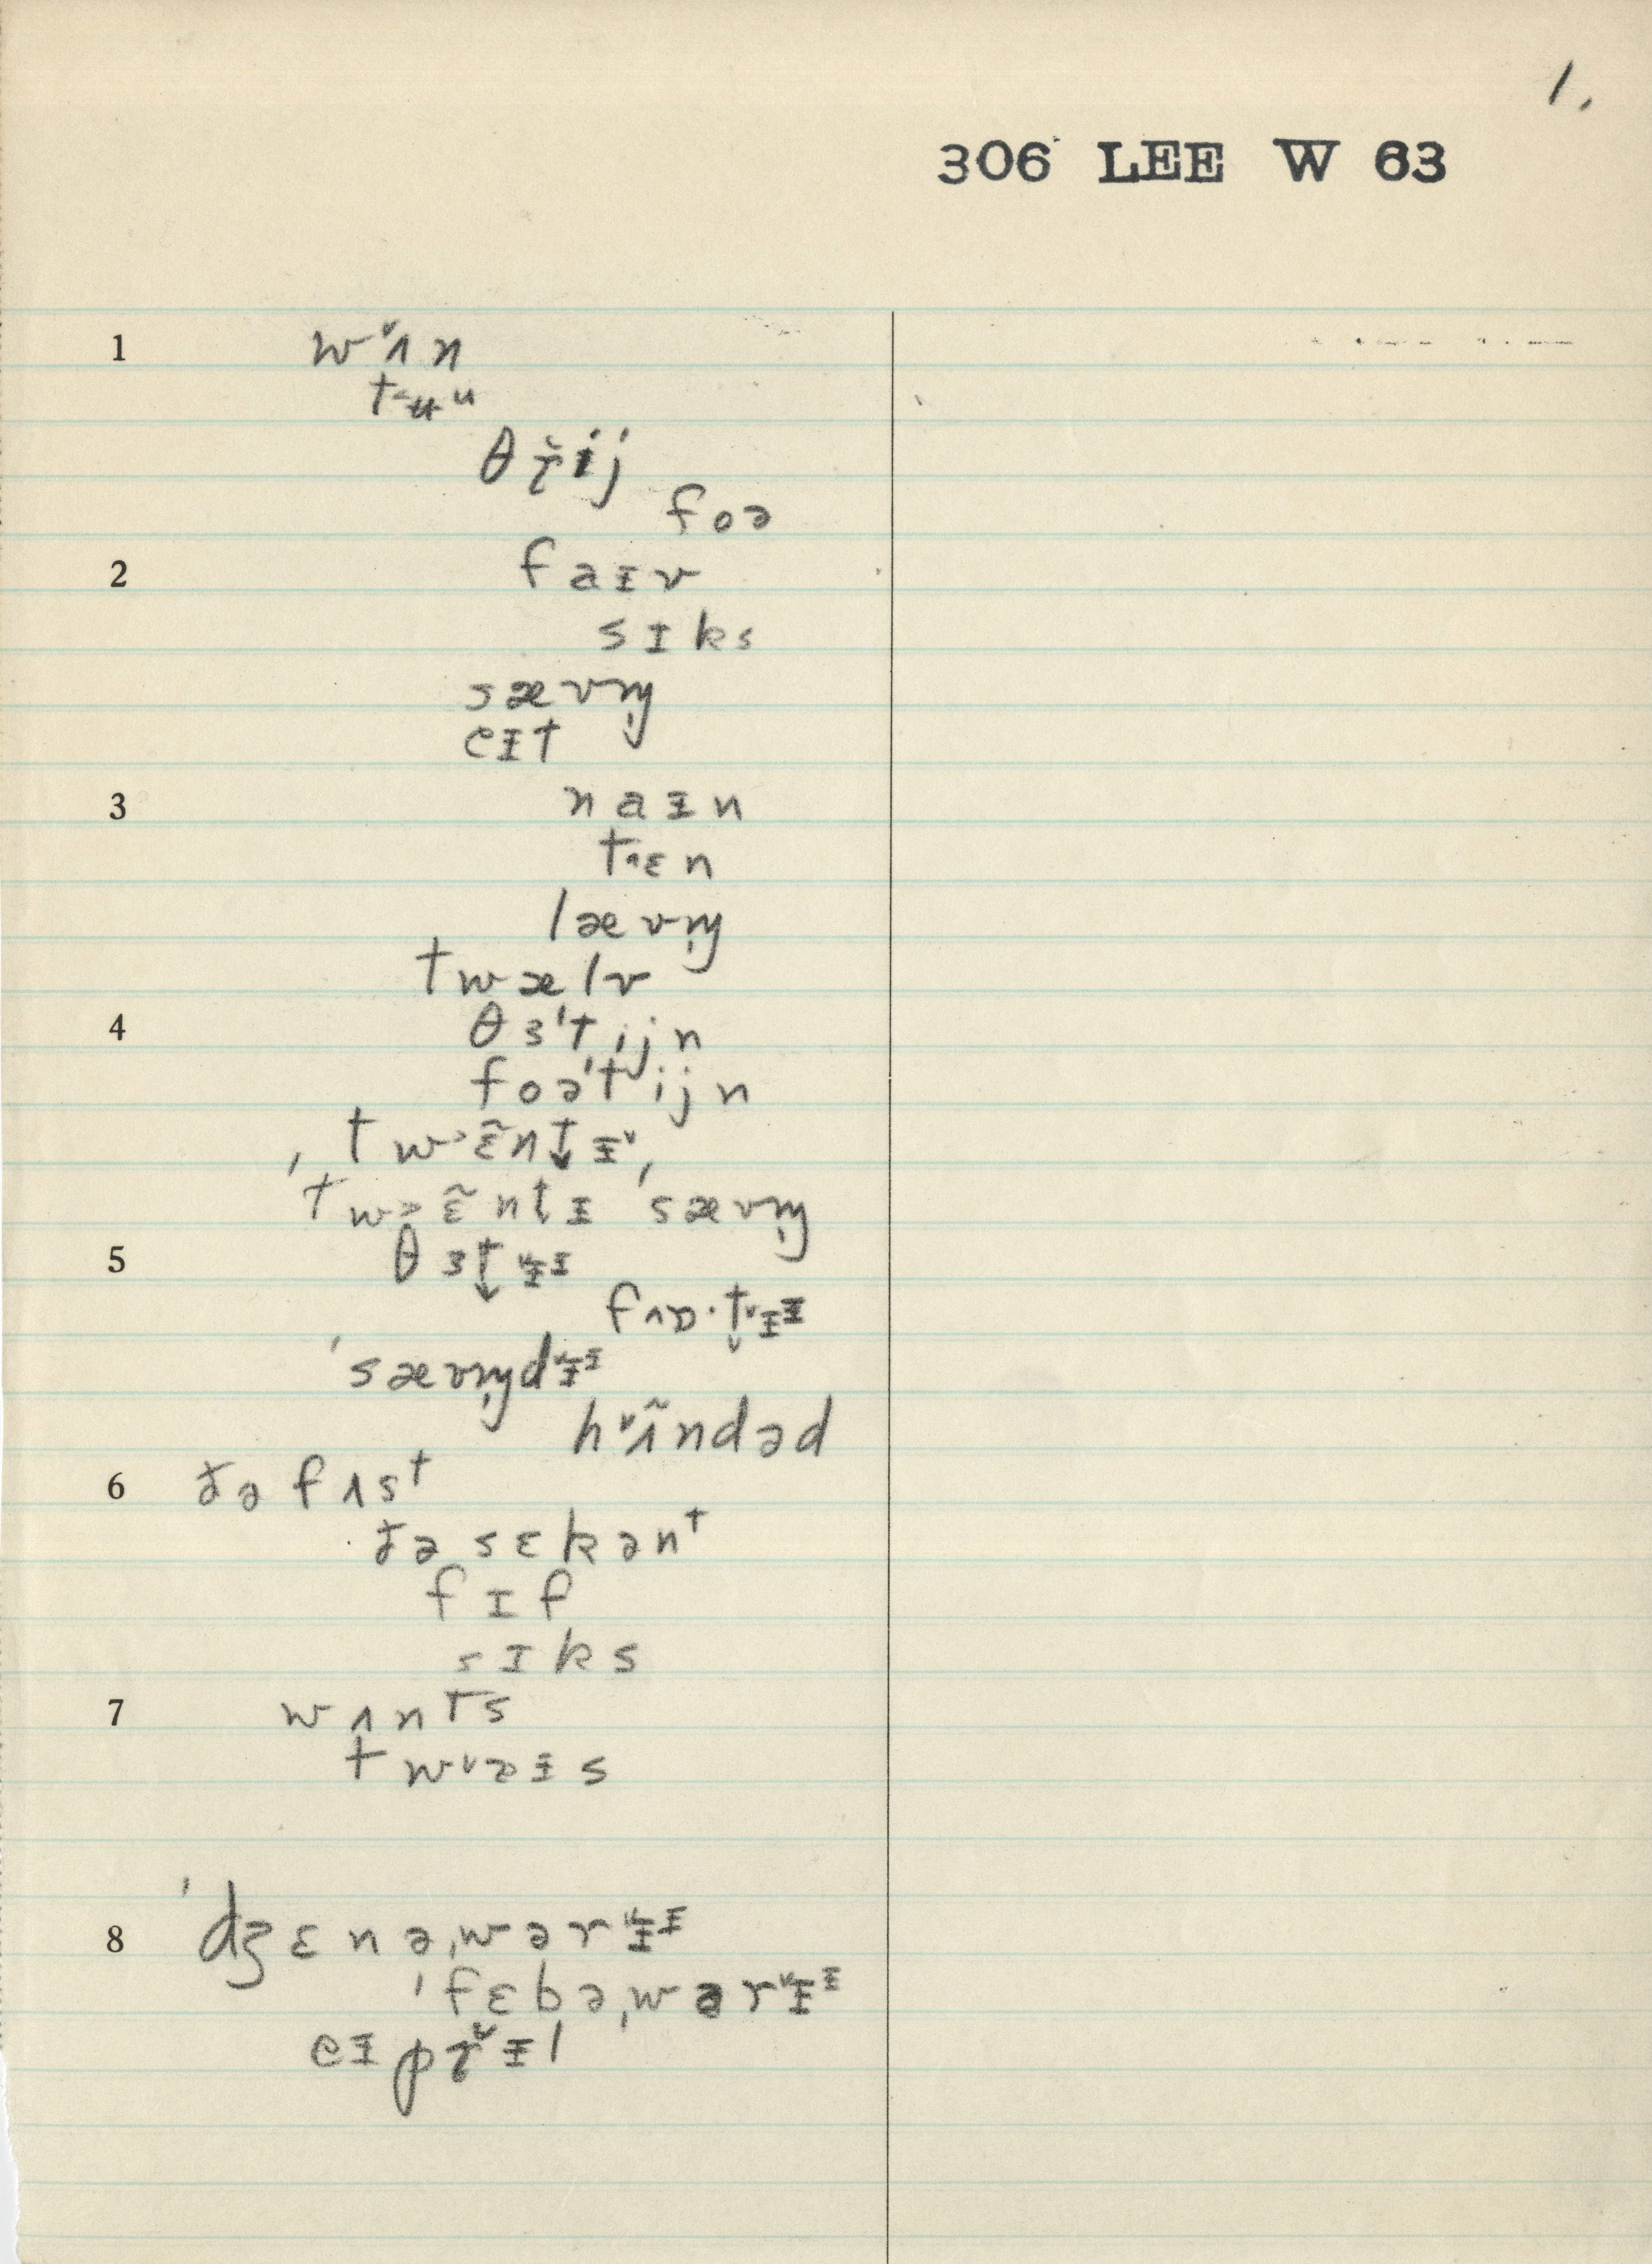 1.
306 LEE W 63
1 wˇʌn
t˂ʉu
θɽ̌ij
foə
2 faɪv
sɪks
sævm̩
eɪt
3 naɪn
t˄ɛn
lævm̩
twælv
4 θɜˈtijn
foəˈtijn
ˈtw˃ɛ̃nt̬ɪˇ,
ˈtw˃ɛ̃nt̬ɪ ˈsævm̩
5 θɜt̬ˇɪɪ
fʌɒ·t̬ˇɪɪ
ˈsævm̩dˇɪɪ
hˇʌ̃ndəd
6 ðə fʌst
ðə sɛkənt
fɪf
sɪks
7 wʌnts
twˇɒɪs
8 ˈdʒɛnəˌwərˇɪɪ
ˈfɛbəˌwərˇɪɪ
eɪpɽˇɪl